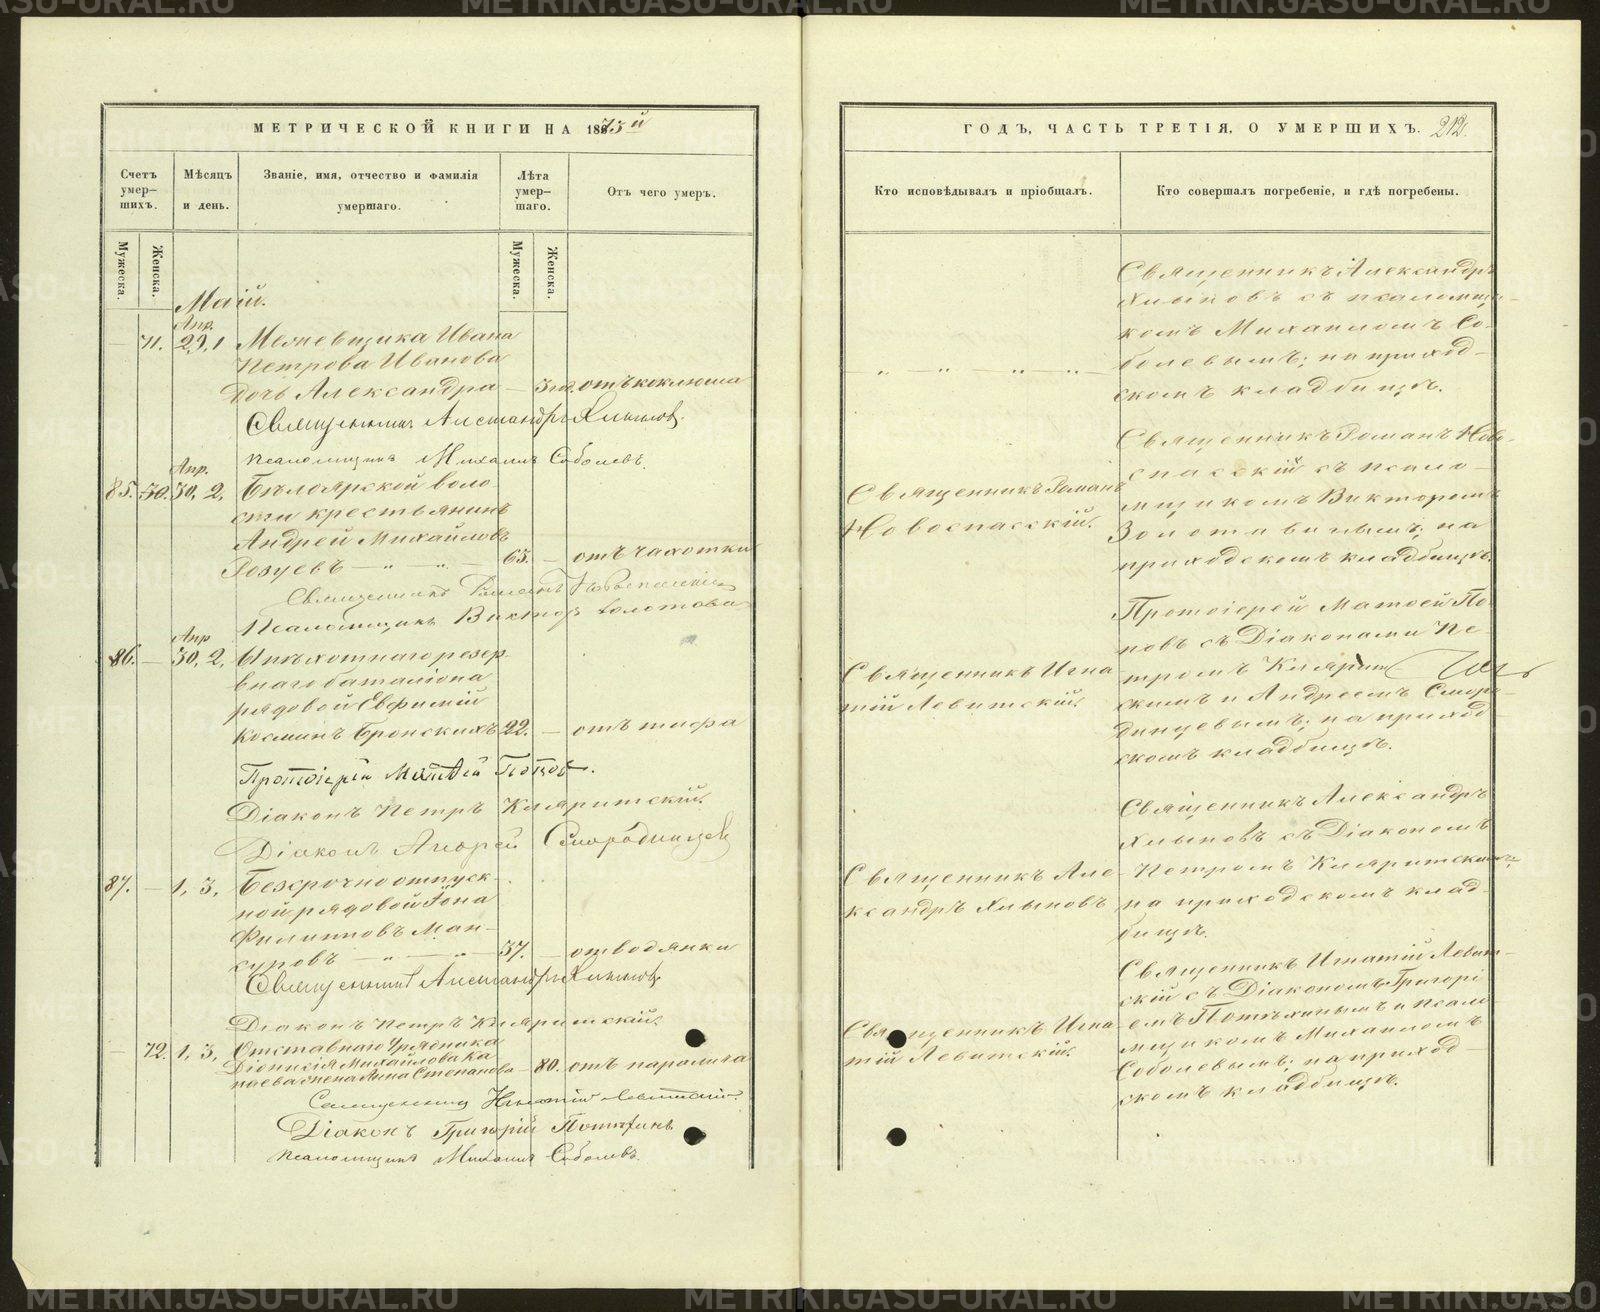 МЕТРИЧЕСКОЙ КНИГИ НА 1873й
Счетъ умер-шихъ.
Мѣсяцъ и день.
Званіе, имя, отчество и фамилія умершаго.
Лѣта умер-шаго.
Отъ чего умеръ.
Мужеска.
Женска.
Мужеска.
Женска.
Маій.
Апр.
71. 29, 1 Мелневщика Ивана
Петрова Иванова
дочь Александра — 3 отъ коклюша
Священникъ Александръ Хлыновъ.
Псаломщикъ Михаилъ Соболевъ.
Апр.
85. 30, 2, Бѣлоярской воло
сти крестьянинъ
Андрей Михайловъ
63. — отъ чахотки
Священникъ Романъ Новоспасскій
Псаломщикъ Викторъ Золотова
Апр
86. — 30, 2, пѣхотнаго резер-
внаго баталіона
рядовой Евфимій
Косминъ Бронскихъ 22. — отъ тифа
Протоіерей Матѳей Поповъ.
Діаконъ Петръ Кляритскій.
Діаконъ Андрей Смородинцевъ
87. — 1, 3, Безсрочноотпуск-
ной рядовой Іона
Филипповъ Ман-
суровъ — " — " — 37. — отъ водянки
Священникъ Александръ Хлыновъ
Діаконъ Петръ Кляритскій.
— 72. 1, 3, Отставнаго Урядника
Діонисія Михайлова Ка
паева жена Анна Степанова — 80. отъ паралича
Священникъ Игнатій Левитскій.
Діаконъ Григорій Потѣхинъ
Псаломщикъ Михаилъ Соболевъ.
ГОДЪ, ЧАСТЬ ТРЕТІЯ, О УМЕРШИХЪ. 212.
Кто исповѣдывалъ и пріобщалъ.
Кто совершалъ погребеніе, и гдѣ погребены.
Священникъ Александръ
Хлыновъ съ псаломщи-
комъ Михаиломъ Со-
болевымъ; на приход-
скомъ кладбищѣ.
— " — " — " — " —
Священникъ Романъ
Новоспасскій.
Священникъ Романъ Ново-
спасскій съ псало-
мщикомъ Викторомъ
на
приходскомъ кладбищѣ.
Священникъ Игна
тій Левитскій.
Протоіерей Матѳей По-
повъ съ Діаконами Пе-
тромъ Клярит
скимъ и Андреемъ Сморо-
динцевымъ; на приход-
скомъ кладбищѣ.
Священникъ Але-
ксандръ Хлыновъ
Священникъ Александръ
Хлыновъ съ Діакономъ
Петромъ Кляритскимъ;
на приходскомъ клад-
бищѣ.
Священникъ Игна
тій Левитскій.
Священникъ Игнатій Левит-
скій съ Діакономъ Григорі
емъ Потѣхинымъ и псало-
мщикомъ Михаиломъ
Соболевымъ; на приход-
скомъ кладбищѣ.
METRIKI.GASO-URAL.RU